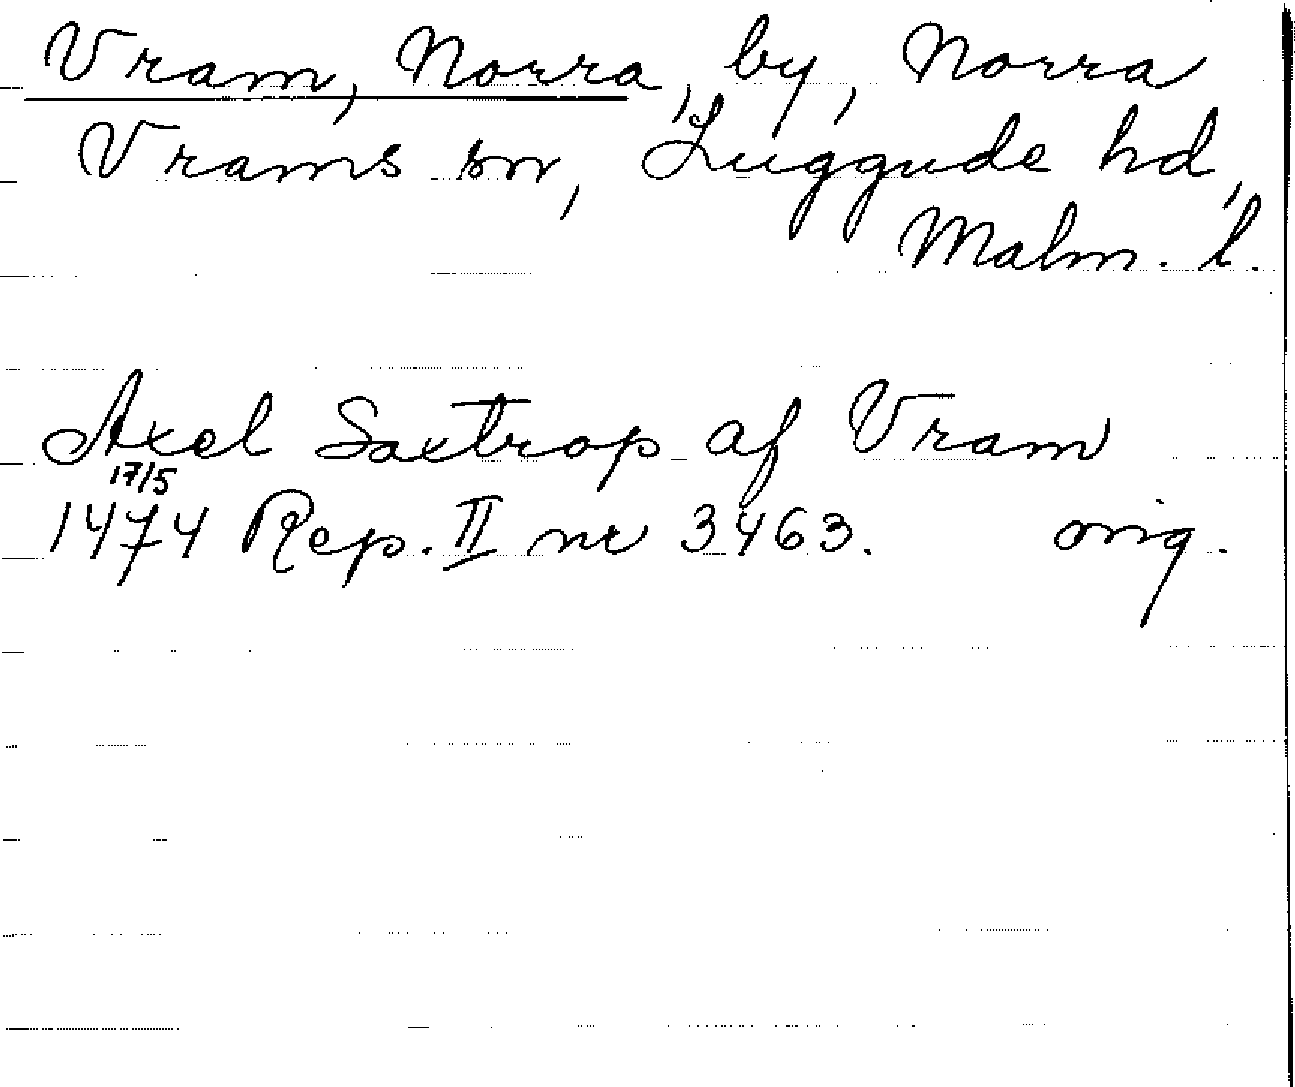 Vram, Norra, by, Norra
Vrams sn, Luggude hd,
Malm. l.
Axel Saxtrop af Vram
17/5
1474 Rep. II nr 3463. orig.